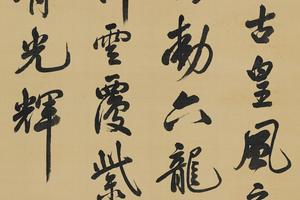 古皇風
勅六龍
雲覆紫
光輝